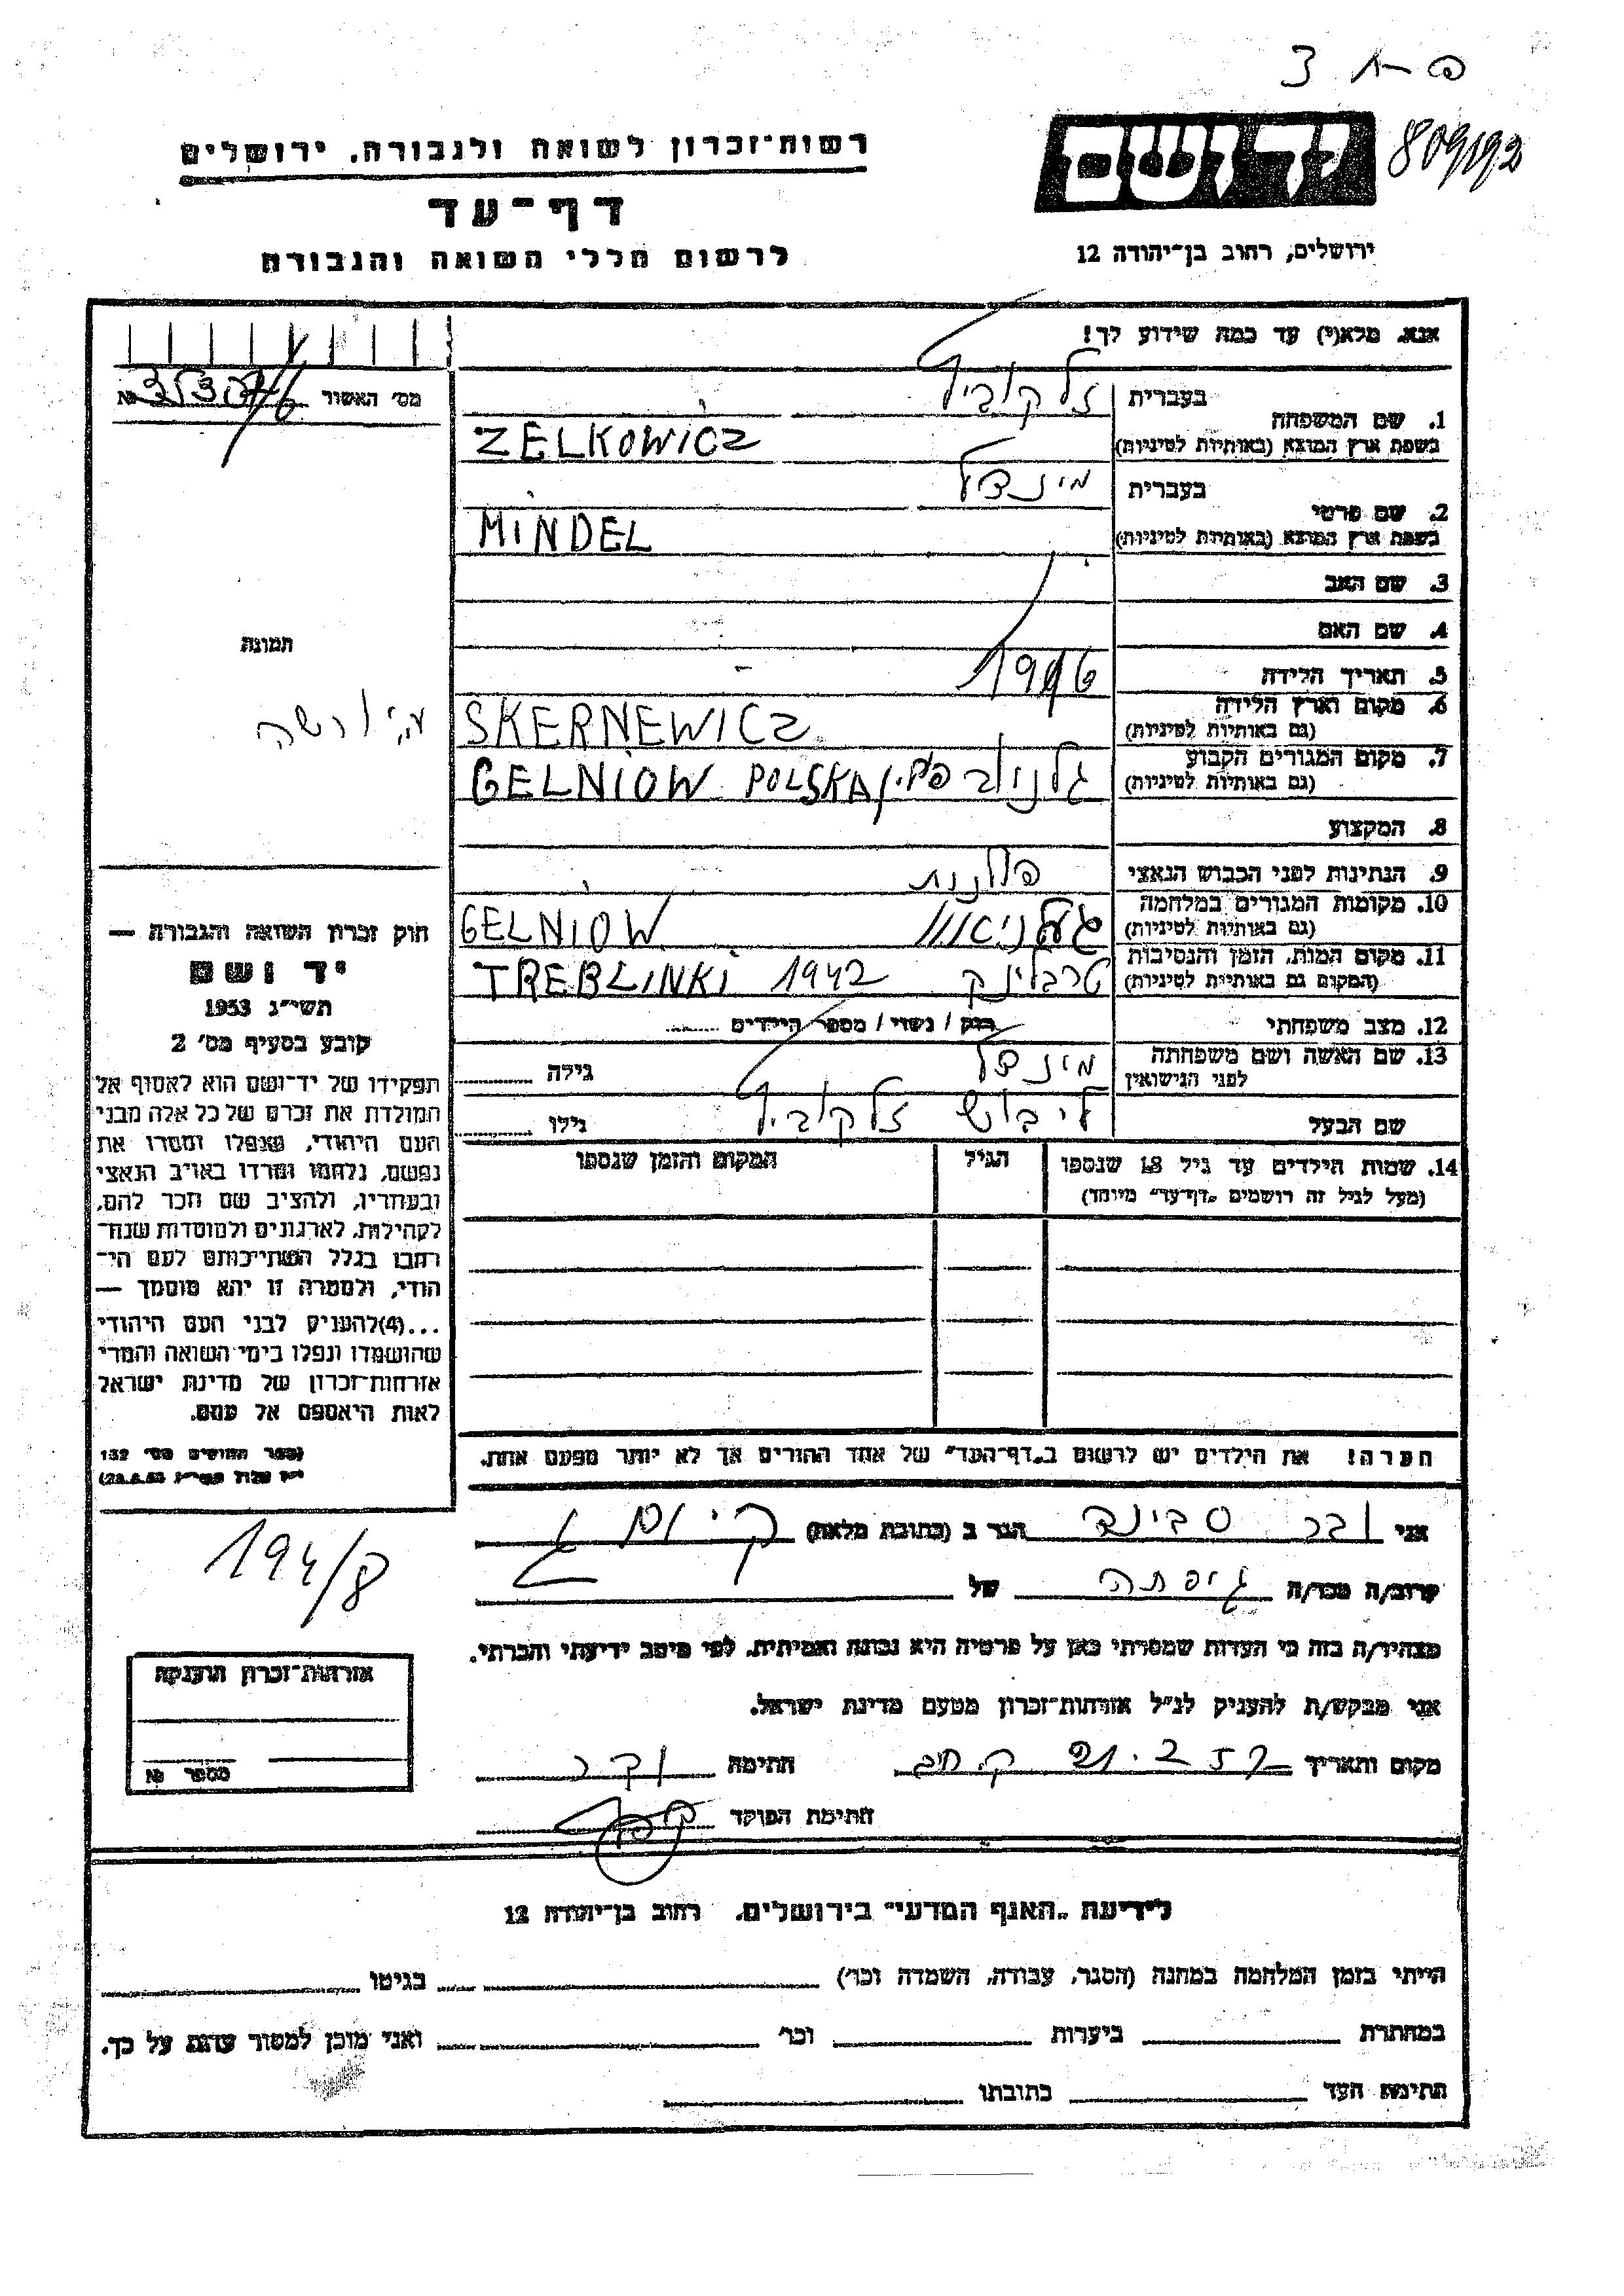 פ-א 3
יד ושם
809/92
ירושלים, רחוב בן־יהודה 12
רשות־זכרון לשואה ולגבורה. ירושלים
דף־עד
לרשום חללי השואה והגבורה
אנא. מלא(י) עד כמה שידוע לך!
מס' האשור №
1. שם המשפחה
בעברית זלקוביץ
בשפת ארץ המוצא (באותיות לטיניות) ZELKOWICZ
2. שם פרטי
בעברית מינדל
בשפת ארץ המוצא (באותיות לטיניות) MINDEL
3. שם האב
4. שם האם
5. תאריך הלידה 1916
6. מקום וארץ הלידה
(גם באותיות לטיניות) SKERNEWICZ
7. מקום המגורים הקבוע
(גם באותיות לטיניות) גלניוב GELNIOW POLSKA
8. המקצוע
9. הנתינות לפני הכבוש הנאצי פולנית
10. מקומות המגורים במלחמה
(גם באותיות לטיניות) געלניאוו GELNIOW
11. מקום המות, הזמן והנסיבות
(המקום גם באותיות לטיניות) טרבלינק TREBLINKI 1942
12. מצב משפחתי רוק / נשוי / מספר הילדים
13. שם האשה ושם משפחתה
לפני הנישואין מינדל גילה
שם הבעל ליבוש זלקוביץ גילו
14. שמות הילדים עד גיל 18 שנספו הגיל המקום והזמן שנספו
(מעל לגיל זה רושמים "דף־עד" מיוחד)
הערה! את הילדים יש לרשום ב"דף־העד" של אחד ההורים אך לא יותר מפעם אחת.
תמונה
חוק זכרון השואה והגבורה —
יד ושם
תשי"ג 1953
קובע בסעיף מס' 2
תפקידו של יד־ושם הוא לאסוף אל
המולדת את זכרם של כל אלה מבני
העם היהודי, שנפלו ומסרו את
נפשם, נלחמו ומרדו באויב הנאצי
ובעוזריו, ולהציב שם וזכר להם,
לקהילות, לארגונים ולמוסדות שנח־
רבו בגלל השתייכותם לעם הי־
הודי, ולמטרה זו יהא מוסמך —
...(4)להעניק לבני העם היהודי
שהושמדו ונפלו בימי השואה והמרי
אזרחות־זכרון של מדינת ישראל
לאות היאספם אל עמם.
(ספר החוקים מס' 132
194/8
אני סבינה הגר ב (כתובת מלאה)
קרוב/ה מכר/ה גיסתה של
מצהיר/ה בזה כי העדות שמסרתי כאן על פרטיה היא נכונה ואמיתית, לפי מיטב ידיעתי והכרתי.
אני מבקש/ת להעניק לנ"ל אזרחות־זכרון מטעם מדינת ישראל.
מקום ותאריך חתימה
חתימת הפוקד
אזרחות־זכרון הוענקה
מספר №
לידיעת "האגף המדעי" בירושלים. רחוב בן־יהודה 12
הייתי בזמן המלחמה במחנה (הסגר, עבודה, השמדה וכו') בגיטו
במחתרת ביערות וכו' ואני מוכן למסור עדות על כך.
חתימת העד כתובתו